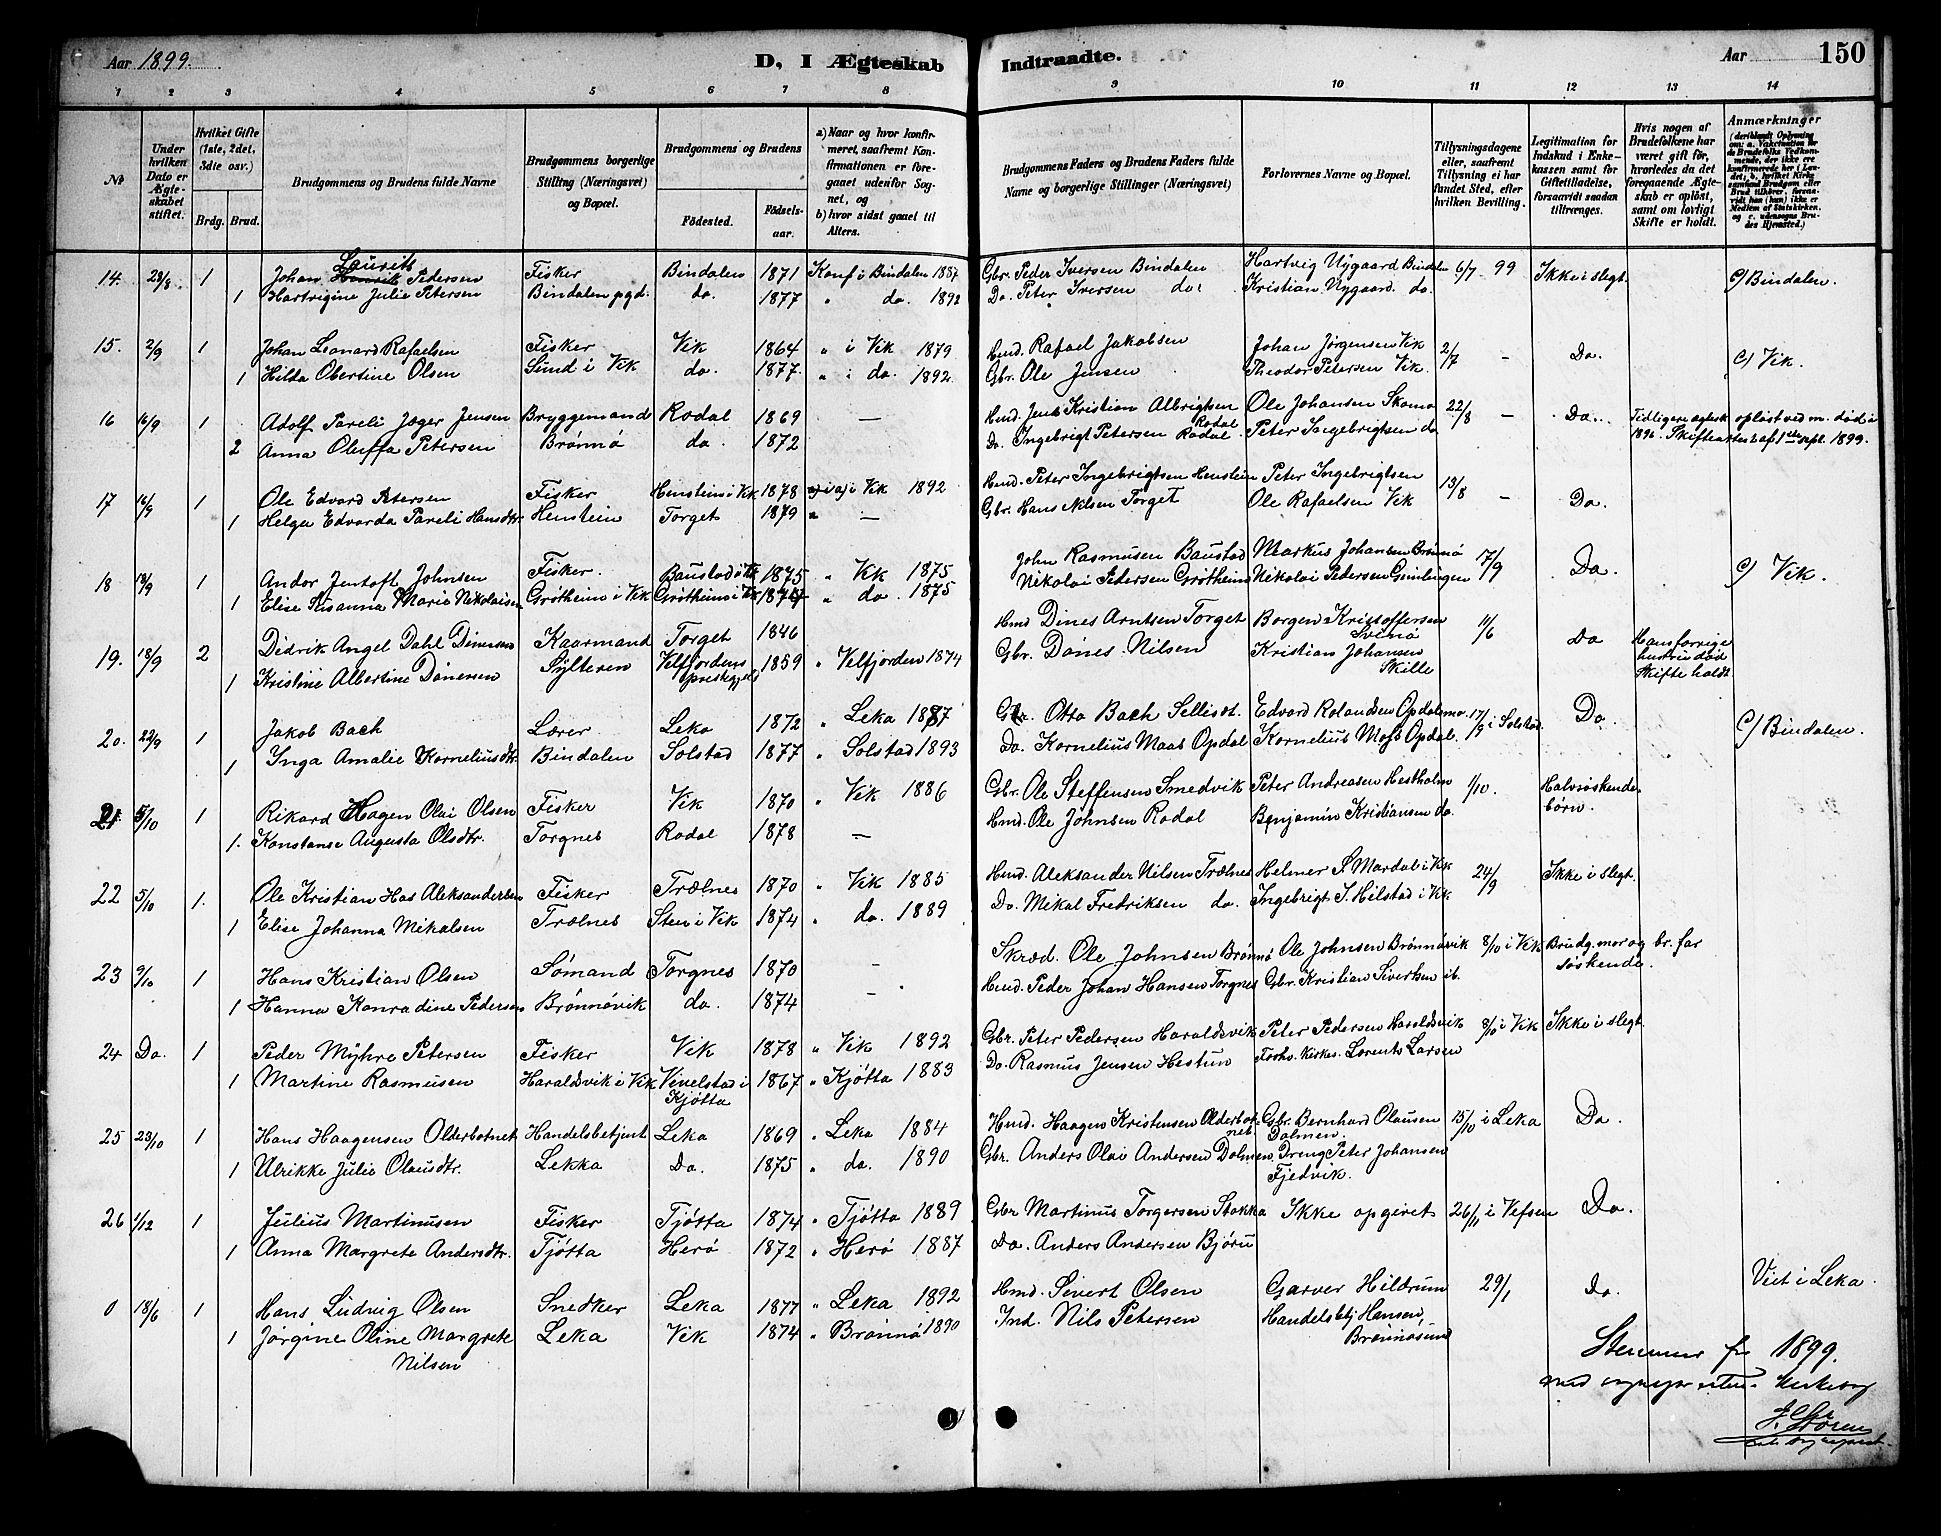 Aar 1899.
D, I Ægteskab
Indtraadte.
Aar 150
1 2 3 4 5 6 7 8 9 10 11 12 13 14
No
Under hvilken Dato er Ægteskabet stiftet.
Hvilket Gifte (1ste, 2det, 3die osv.)
Brdg. Brud.
Brudgommens og Brudens fulde Navne
Brudgommens borgerlige Stilling (Næringsvei) og Bopæl.
Brudgommens og Brudens
Fødested. Fødselsaar.
a) Naar og hvor konfirmeret, saafremt Konfirmationen er foregaaet udenfor Sognet, og
b) hvor sidst gaaet til Alters.
Brudgommens Faders og Brudens Faders fulde Navne og borgerlige Stillinger (Næringsvei)
Forlovernes Navne og Bopæl.
Tillysningsdagene eller, saafremt Tillysning ei har fundet Sted, efter hvilken Bevilling.
Legitimation for Indskud i Enkekassen samt for Giftetilladelse, forsaavidt saadan tiltrænges.
Hvis nogen af Brudefolkene har været gift før, hvorledes da det foregaaende Ægteskab er opløst, samt om lovligt Skifte er holdt.
Anmærkninger
14. 28/8 1 Johan Laurits Pedersen Fisker Bindalen 1871 Konf i Bindalen 1887 Gbr. Peder Iversen Bindalen Hartvig Nygaard Bindalen 6/7 99 Ikke i slegt. c) Bindalen.
1 Hartvigine Julie Petersen Bindalen pgd. do. 1877 " do. 1892 Do. Peter Iversen do. Kristian Nygaard. do.
15. 2/9 1 Johan Leonard Rafaelsen Fisker Vik 1864 " i Vik 1879 Hmd. Rafael Jakobsen Johan Jørgensen Vik 2/7 – Do. c) Vik.
1 Hilda Obertine Olsen Sund i Vik do. 1877. " i do. 1892. Gbr. Ole Jensen Theodor Petersen Vik.
16 16/9 1 Adolf Pareli Jæger Jensen Bryggemand Rodal 1869 — Hmd. Jens Kristian Albrigtsen Rodal Ole Johansen Skomo 22/8 – Do. Tidligere ægtesk. opløst ved m. død i
2 Anna Oluffa Petersen Brønnø do. 1872 Do. Ingebrigt Petersen Rodal. Peter Ingebrigtsen do 1896. Skifteattest af 1ste sept. 1899.
17 16/9 1 Ole Edvard Petersen Fisker Henstein i Vik 1878 a) i Vik 1892 Hmd. Peter Ingebrigtsen Henstein Peter Ingebrigtsen 13/8 – Do.
1 Helga Edvarda Pareli Hansdtr. Henstein Torget 1879 " — Gbr. Hans Nilsen Torget Ole Rafaelsen Vik
18 18/9 1 Andor Jentoft Johnsen Fisker. Baustad i Vik 1875 " Vik 1875 John Rasmusen Baustad Markus Johansen Brønnø 17/9 Do. c) Vik.
1 Elise Susanna Marie Nikolaisen Grøtheim i Vik Grøtheim i Vik 1874 " do. 1875 Nikolai Pedersen Grøtheim Nikolai Pedersen
19. 18/9 2 Didrik Angel Dahl Dinesen Kaarmand Torget 1846 Hmd Dines Arntsen Torget Borgen Kristoffersen Svinø 11/6 Do Hans forrige hustru død
1 Kristine Albertine Dønesen Sylteren Velfjordens prestegjeld 1859 " Velfjorden 1874 Gbr. Dønes Nilsen Kristian Johansen Skille Skifte holdt.
20. 22/9 1 Jakob Bach Lærer Leka 1872 " Leka 1887 Gbr. Otto Bach Sellisdt. Edvard Rolandsen Opdalsmo. 17/9 i Solstad. Do. c) Bindalen.
1 Inga Amalie Korneliusdtr. Bindalen Solstad 1877 " Solstad 1893 Do. Kornelius Maas Opdal Kornelius Opdal.
21 5/10 1 Rikard Hagen Olai Olsen Fisker Vik 1870 " Vik 1886 Gbr. Ole Steffensen Smedvik Peter Andreasen Hestholm 1/10. Halvsøskendebørn.
1. Konstanse Augusta Olsdtr. Torgnes Rodal 1878 — Hmd. Ole Johnsen Rodal Benjamin Kristiansen do.
22 5/10 1. Ole Kristian Has Aleksandersen Fisker Trælnes 1870 " Vik 1885 Hmd. Aleksander Nilsen Trælnes Helmer S. Mardal i Vik 24/9 Ikke i slegt.
1 Elise Johanna Mikalsen Trælnes Sten i Vik 1874 " do. 1889 Do. Mikal Fredriksen do. Ingebrigt I. Hilstad i Vik.
23 9/10 1 Hans Kristian Olsen Sømand Torgnes 1870 – Skræd. Ole Johnsen Brønnø Ole Johnsen Brønnøvik 8/10 i Vik Brudg. mor og br. far søskende.
1 Hanna Konradine Pedersen Brønnøvik do. 1874 – Hmd. Peder Johan Hansen Torgnes Gbr. Kristian Sivertsen ib.
24 Do. 1 Peder Myhre Petersen Fisker Vik 1878 " Vik 1892 Gbr. Peter Pedersen Haraldsvik Peter Pedersen Haraldsvik 8/10 i Vik Ikke i slegt.
1 Martine Rasmusen Haraldsvik i Vik Vivelstad i Kjøtta 1867 " Kjøtta 1883 Do. Rasmus Jensen Hestun Forhv. Kirkes. Lorents Larsen
25 23/10 1 Hans Haagensen Olderbotnet Handelsbetjent Leka 1869 " Leka 1884 Hmd. Haagen Kristensen Olderbotnet Gbr. Bernhard Olausen Dolmen. 15/10 i Leka Do.
1 Ulrikke Julie Olausdtr. Lekka Do. 1875 " do. 1890 Gbr. Anders Olai Andersen Dolmen. Dreng Peter Johansen Fjedvik.
26 1/12 1 Julius Martinusen Fisker Tjøtta 1874 " Tjøtta 1889 Gbr Martinus Torgersen Stokka Ikke opgivet 26/11 i Vefsen Do.
1 Anna Margrete Andersdtr. Tjøtta Herø 1872 " Herø 1887 Do. Anders Andersen Bjørn
0 18/6 1 Hans Ludvig Olsen Snedker Leka 1877 " Leka 1892 Hmd. Sivert Olsen Garver Hildrum 29/1 Do. Viet i Leka.
1 Jørgine Oline Margrete Nilsen Leka Vik 1874 " Brønnø 1890 Ind. Nils Petersen Handelsbtj Hansen, Brønnøsund
Stemmer 1899.